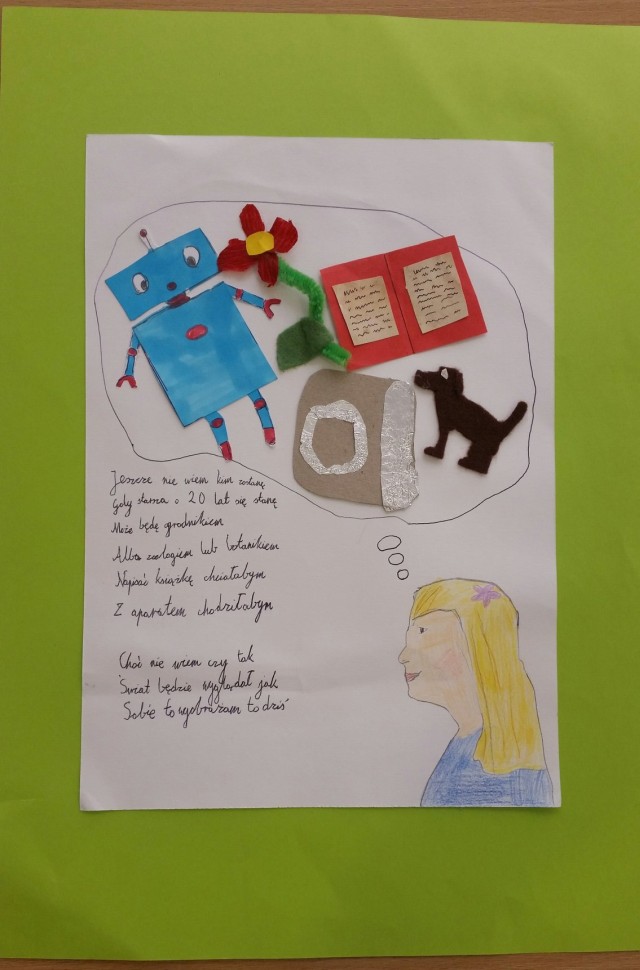 Jeszcze nie wiem kim zostanę
Gdy starsza o 20 lat się stanę
Może będę ogrodnikiem
Albo zoologiem lub botanikiem
Napisać książkę chciałabym
Z aparatem chodziłabym
Choć nie wiem czy tak
Świat będzie wyglądał jak
Sobie to wyobrażam to dziś